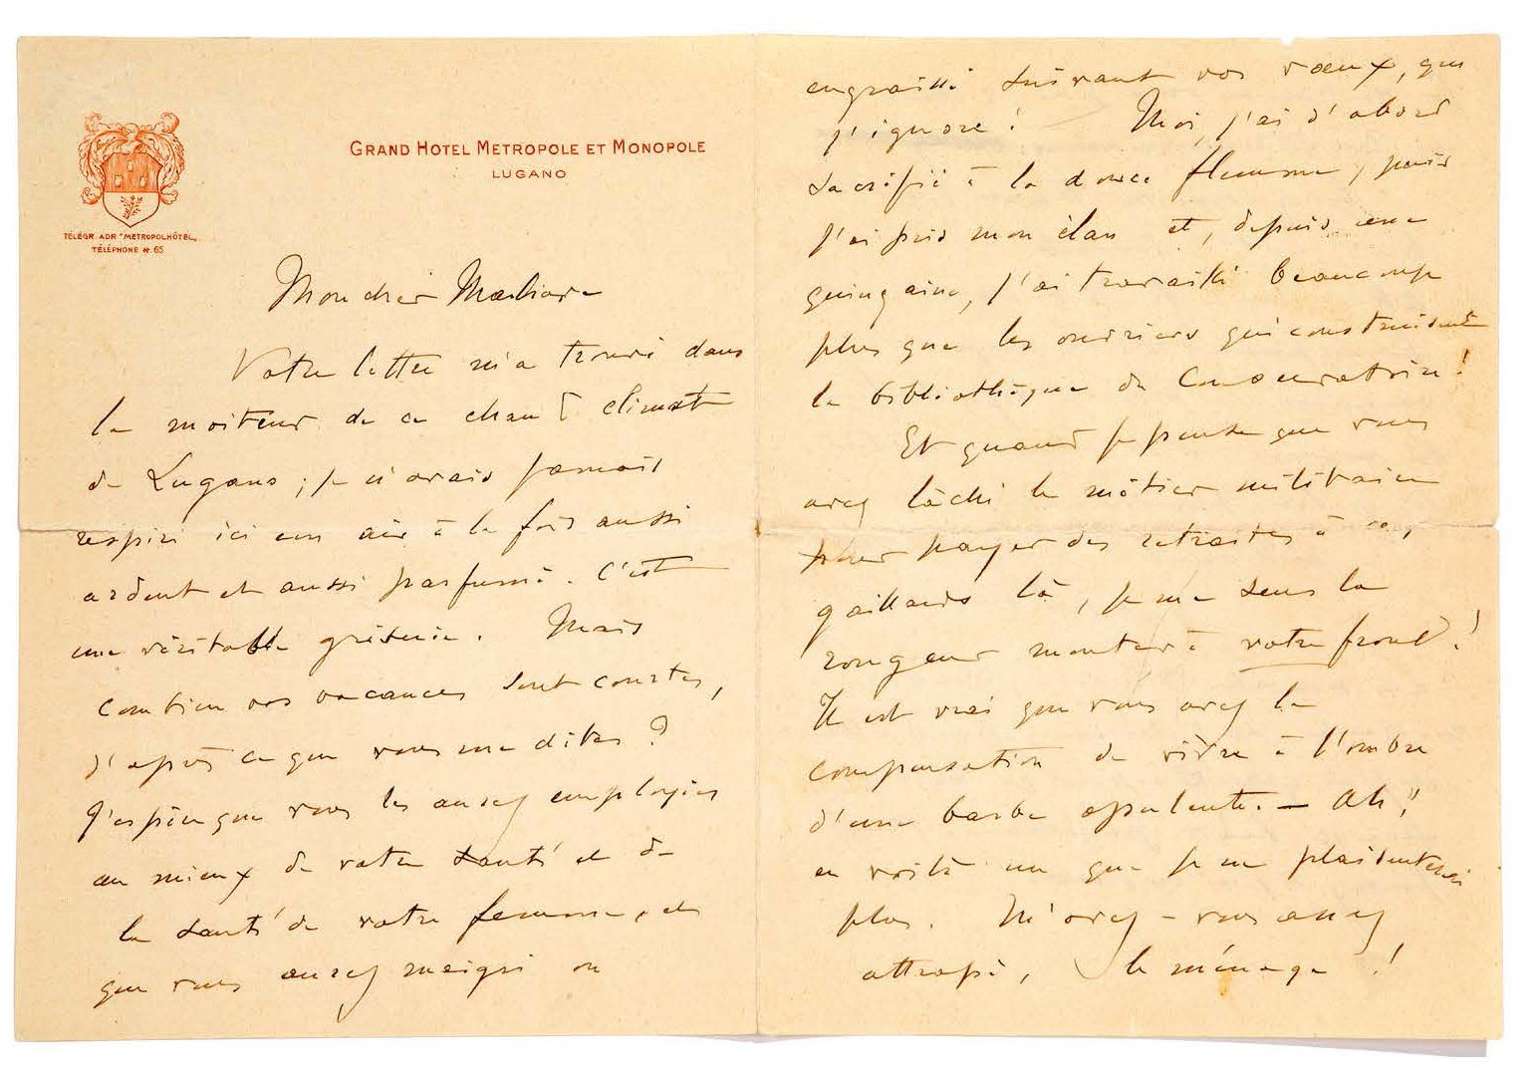 GRAND HOTEL METROPOLE ET MONOPOLE
LUGANO
TÉLÉGR. ADR "METROPOLHÔTEL"
TÉLÉPHONE № 65
Mon cher
Votre lettre m'a trouvé dans
la moiteur de ce chaud climat
de Lugano ; je n'avais jamais
respiré ici un air à la fois aussi
ardent et aussi parfumé. C'est
une véritable griserie. Mais
combien vos vacances sont courtes,
d'après ce que vous me dites ?
J'espère que vous les aurez employées
au mieux de votre santé et de
la santé de votre femme, et
que vous aurez maigri ou
engraissé suivant vos vœux, que
j'ignore ! Moi, j'ai d'abord
sacrifié à la douce flemme, puis
j'ai pris mon élan et, depuis une
quinzaine, j'ai travaillé beaucoup
plus que les ouvriers qui construisent
la bibliothèque du Conservatoire !
Et quand je pense que vous
avez lâché le métier militaire
pour payer des retraites à ces
gaillards là, je me sens la
rougeur monter à votre front !
Il est vrai que vous avez la
compensation de vivre à l'ombre
d'une barbe opulente. — Ah !
en voilà un que je ne plaisanterai
plus. M'avez-vous assez
attrapé, le ménage !